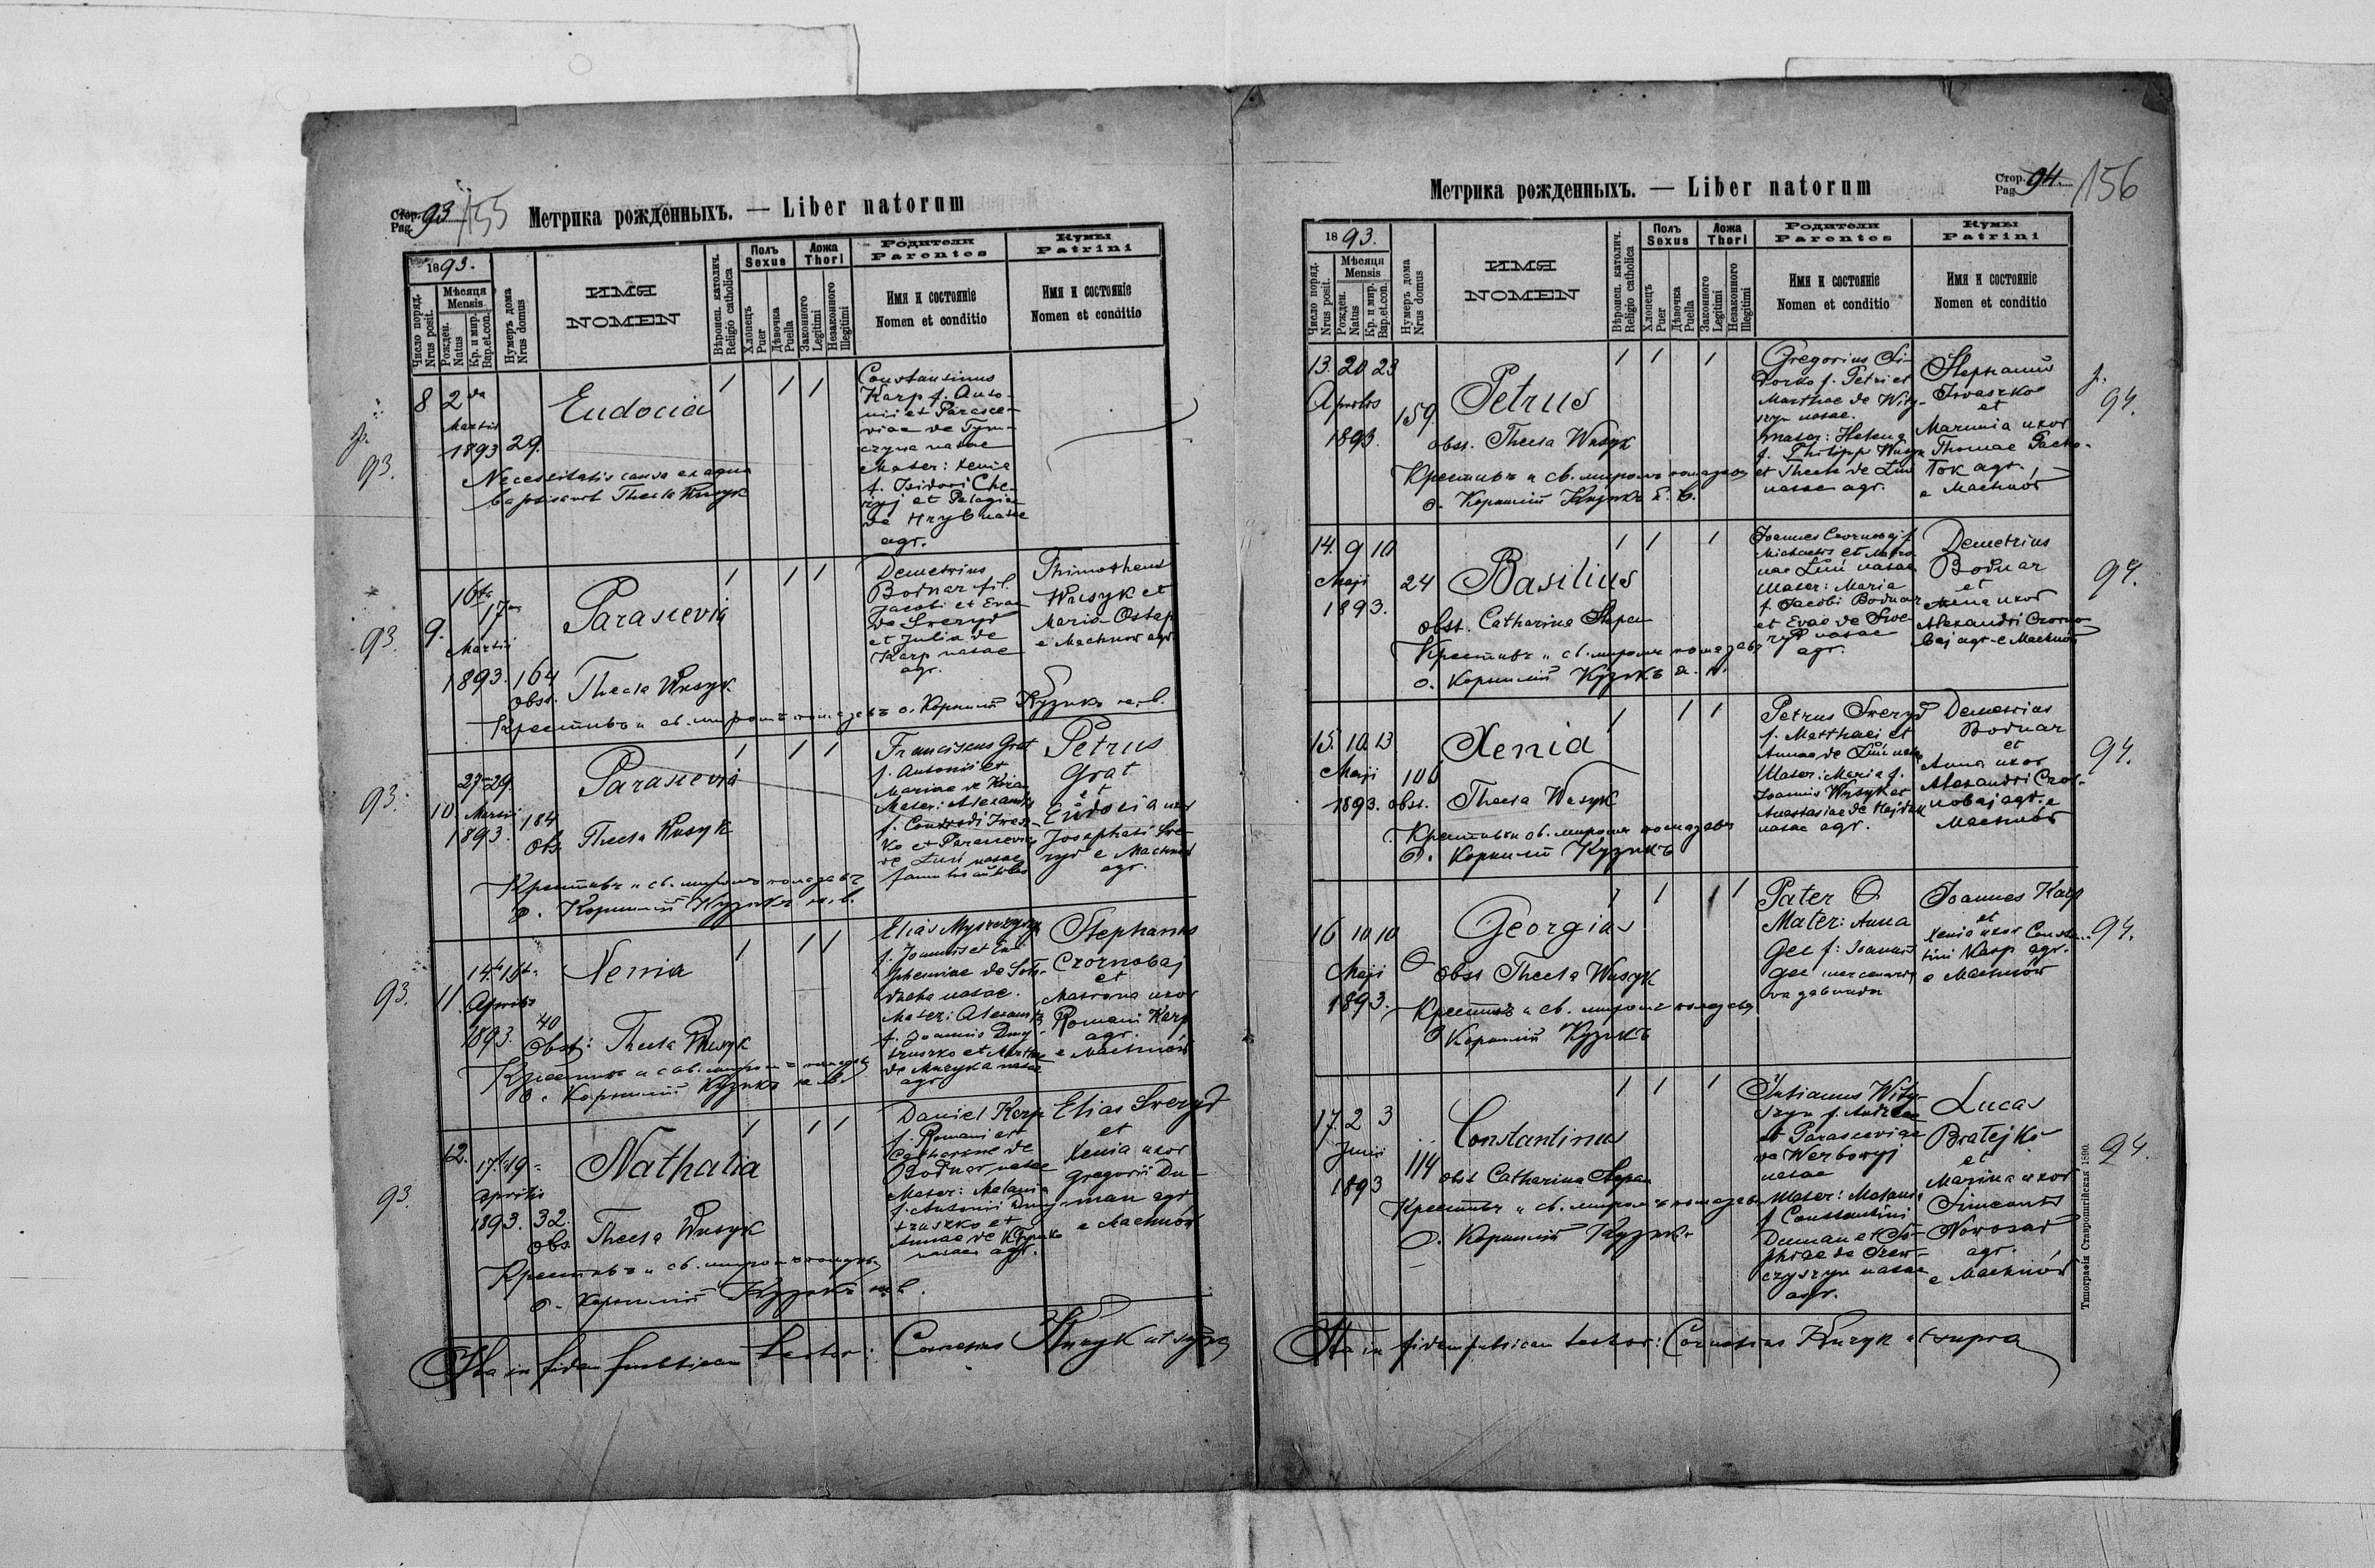 Стор. Pag. 93 155
Метрика рожденныхъ. — Liber natorum
1893.
Число поряд. Nrus posit.
Мѣсяця Mensis
Рожден. Natus
Кр. и мир. Bap.et.con.
Нумеръ дома Nrus domus
ИМЯ
NOMEN
Вѣроисп. католич. Religio catholica
Полъ Sexus
Хлопецъ Puer
Дѣвочка Puella
Ложа Thori
Законного Legitimi
Незаконного Illegitimi
Родители Parentes
Имя и состояніе
Nomen et conditio
Кумы Patrini
Имя и состояніе
Nomen et conditio
93.
8 2da
Martii
1893 29.
Eudocia
1 1 1
Necessitatis causa ex aqua
baptisavit Thecla Kuzyk
Constantinus
Karp f. Anto-
nii et Parasce-
viae de Tym-
czyna natae
Mater: Xenia
f. Isidori Che-
ryj et Pelagiae
de Hryb natae
agr.
93.
9. 16ta 17ma
Martii
1893. 164
Parascevia
1 1 1
obst. Thecla Wusyk
Крестивъ и св. миромъ помазавъ о. Корнилій Кузикъ
Demetrius
Bodnar fil.
Jacobi et Evae
de Sveryd
et Julia de
Karp natae
agr.
Thimotheus
Wusyk et
Maria Ostap
e Machnów agr.
93.
10. 27 29.
Martii
1893. 184
Parascevia
1 1 1
Obs. Thecla Wusyk
Крестивъ и св. миромъ помазавъ
о. Корнилій Кузикъ
Franciscus Grat
f. Antonii et
Mariae de
Mater: Alexandra
f.
ko et Parasceviae
de Luń natae
Petrus
Grat
et
Eudocia uxor
Josaphati Sve-
ryd e Machnów
agr.
93.
11. 14
Aprilis
1893. 40
Xenia
1 1 1
Obst: Thecla Wusyk
Крестивъ и св. миромъ помазавъ
о. Корнилій Кузикъ
Elias
f. Joannis et Eu-
phemiae de
natae.
Mater: Alexandra
f. Joannis Dmy-
truszko et Marthae
de Muzyka natae
agr.
Stephanus
Czornobaj
et
Matrona uxor
Romani Karp
agr.
e Machnów
93.
12. 17 19
Aprilis
1893. 32.
Nathalia
1 1 1
Obs. Thecla Wusyk
Крестивъ и св. миромъ помазавъ
о. Корнилій Кузикъ
Daniel Karp
f. Romani et
Catharinae de
Bodnar natae
Mater: Melania
f. Antonii Dmy-
truszko et
Annae de
natae agr.
Elias Sveryd
et
Xenia uxor
Gregorii Du-
man agr
e Machnów
Ita in fidem publicam testor: Cornelius Kuzyk ut supra
Метрика рожденныхъ. — Liber natorum
Стор. Pag. 94. 156
1893.
Число поряд. Nrus posit.
Мѣсяця Mensis
Рожден. Natus
Кр. и мир. Bap.et.con.
Нумеръ дома Nrus domus
ИМЯ
NOMEN
Вѣроисп. католич. Religio catholica
Полъ Sexus
Хлопецъ Puer
Дѣвочка Puella
Ложа Thori
Законного Legitimi
Незаконного Illegitimi
Родители Parentes
Имя и состояніе
Nomen et conditio
Кумы Patrini
Имя и состояніе
Nomen et conditio
13. 20 23
Aprilis
1893. 159.
Petrus
1 1 1
obst. Thecla Wusyk
Крестивъ и св. миромъ помазавъ
о. Корнилій Кузикъ
Gregorius Si-
dorko f. Petri et
Marthae de Wity-
szyn natae.
Mater: Helena
f. Philippi Wusyk
et Thecla de Luń
natae agr.
Stephanus
Iwaszko
et
Marunia uxor
Thomae
agr.
e Machnów
94.
14. 9 10
Maji 24
1893.
Basilius
1 1 1
obst. Catharina Stepan
Крестивъ и св. миромъ помазавъ
о. Корнилій Кузикъ
Joannes Czornobaj f.
Michaelis et Matro-
nae Luń natae
Mater: Maria
f. Jacobi Bodnar
et Evae de Sve-
ryd natae
agr.
Demetrius
Bodnar
et
Anna uxor
Alexandri Czorno-
baj agr. e Machnów
94.
15. 10 13
Maji
1893.
Xenia
1 1 1
obst. Thecla Wusyk
Крестивъ и св. миромъ помазавъ
о. Корнилій Кузикъ
Petrus Sveryd
f. Matthaei et
Annae de Luń natae
Mater: Maria f.
Joannis Wusyk et
Anastasiae de Hajduk
natae agr.
Demetrius
Bodnar
et
Anna uxor
Alexandri Czor-
nobaj agr. e
Machnów
94.
16 10 10
Maji
1893.
Georgius
1 1 1
obst Thecla Wusyk
Крестивъ и св. миромъ помазавъ
о Корнилій Кузикъ
Pater O
Mater: Anna
Gec f: Joannis
Gec
vagabunda
Joannes Karp
et
Xenia uxor Constan-
tini Karp agr.
e Machnów
94.
17. 2 3
Junii
1893 114
Constantinus
1 1 1
obst Catharina Stepan
Крестивъ и св. миромъ помазавъ
о. Корнилій Кузикъ
Julianus Wity-
szyn f. Andreae
et Parasceviae
de Werbowyj
natae
Mater: Melania
f Constantini
Duman et So-
phiae de
natae
agr.
Lucas
Bratejko
et
Marina uxor
Simeonis
Nowosad
agr.
e Machnów
94.
Ita in fidem publicam testor: Cornelius Kuzyk ut supra
Типографія Ставропигійская 1890.